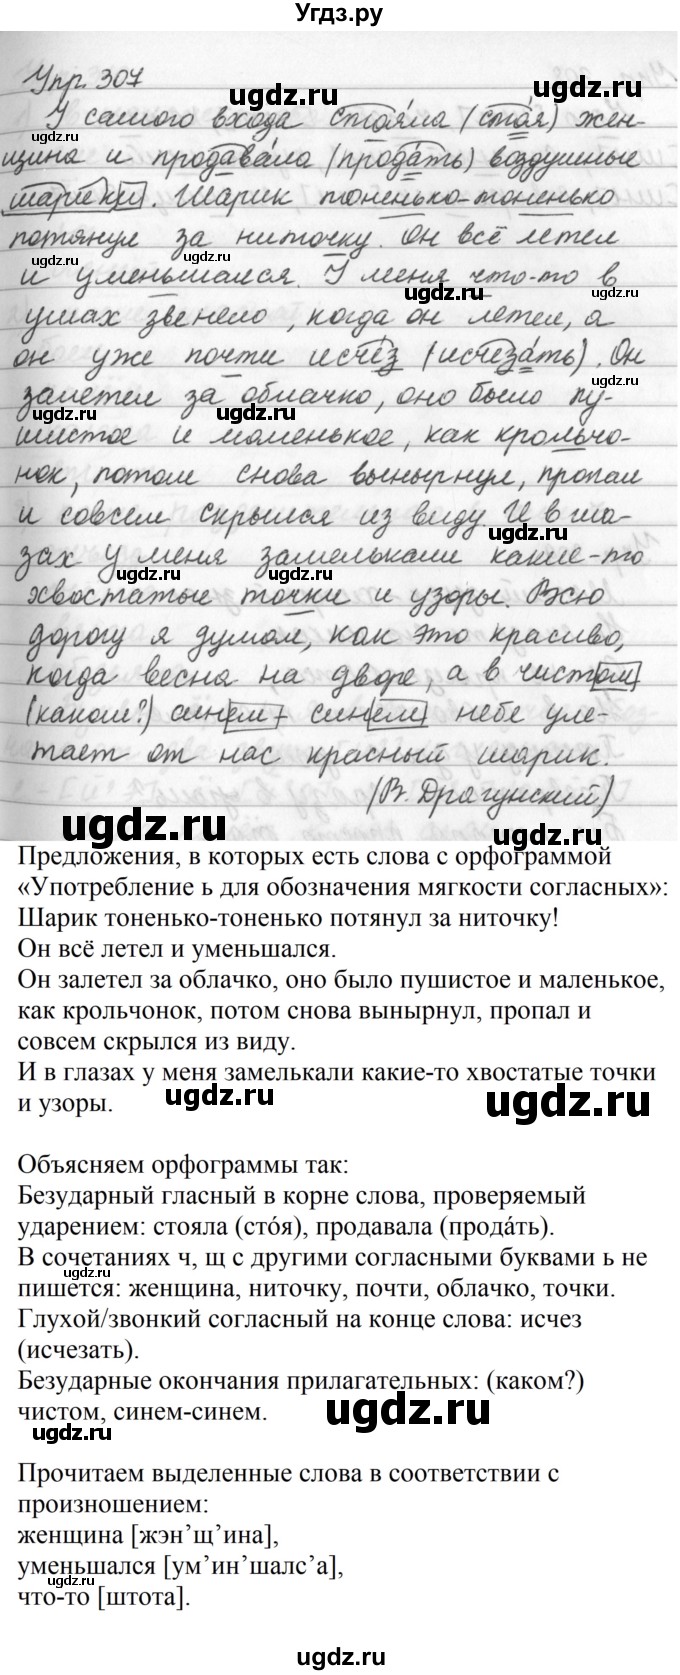 Угдз.ру
Упр. 307
У самого входа стоя́ла (сто́я) жен-
щина и продава́ла (прода́ть) воздушные
шарики. Шарик тоненько-тоненько
потянул за ниточку. Он всё летел
и уменьшался. У меня что-то в
ушах звенело, когда он летел, а
он уже почти исчез (исчеза́ть). Он
залетел за облачко, оно было пу-
шистое и маленькое, как крольчо-
нок, потом снова вынырнул, пропал
и совсем скрылся из виду. И в гла-
зах у меня замелькали какие-то
хвостатые точки и узоры. Всю
дорогу я думал, как это красиво,
когда весна на дворе, а в чистом
(каком?) синем-синем небе уле-
тает от нас красный шарик.
(В. Драгунский)
Предложения, в которых есть слова с орфограммой
«Употребление ь для обозначения мягкости согласных»:
Шарик тоненько-тоненько потянул за ниточку!
Он всё летел и уменьшался.
Он залетел за облачко, оно было пушистое и маленькое,
как крольчонок, потом снова вынырнул, пропал и
совсем скрылся из виду.
И в глазах у меня замелькали какие-то хвостатые точки
и узоры.
Объясняем орфограммы так:
Безударный гласный в корне слова, проверяемый
ударением: стояла (сто́я), продавала (прода́ть).
В сочетаниях ч, щ с другими согласными буквами ь не
пишется: женщина, ниточку, почти, облачко, точки.
Глухой/звонкий согласный на конце слова: исчез
(исчезать).
Безударные окончания прилагательных: (каком?)
чистом, синем-синем.
Прочитаем выделенные слова в соответствии с
произношением:
женщина [жэн’щ’ина],
уменьшался [ум’ин’шалс’а],
что-то [штота].
ugdz.ru